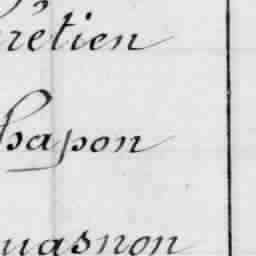 rétien
hapon
uasnon